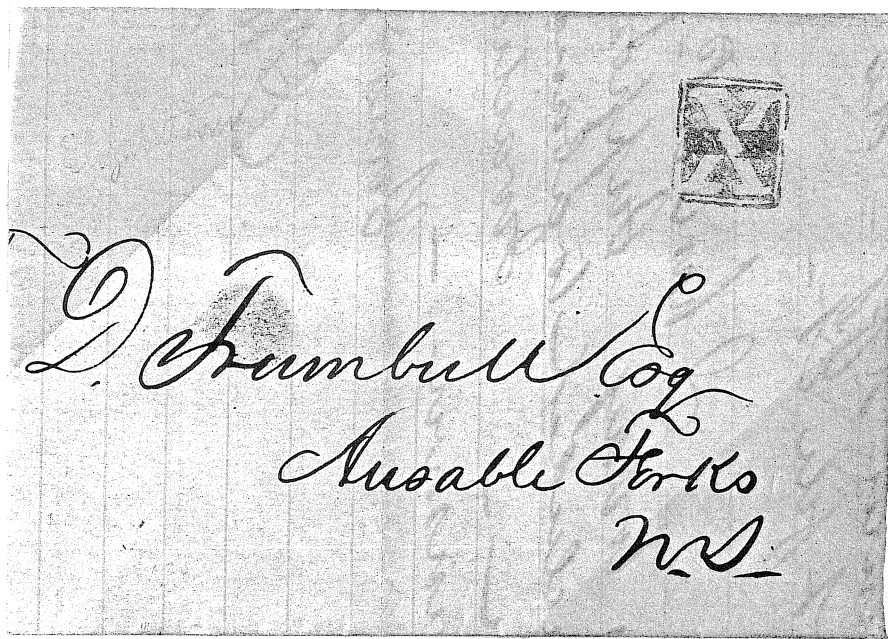 X
D. Trumbull Esq
Ausable Forks
N.Y.